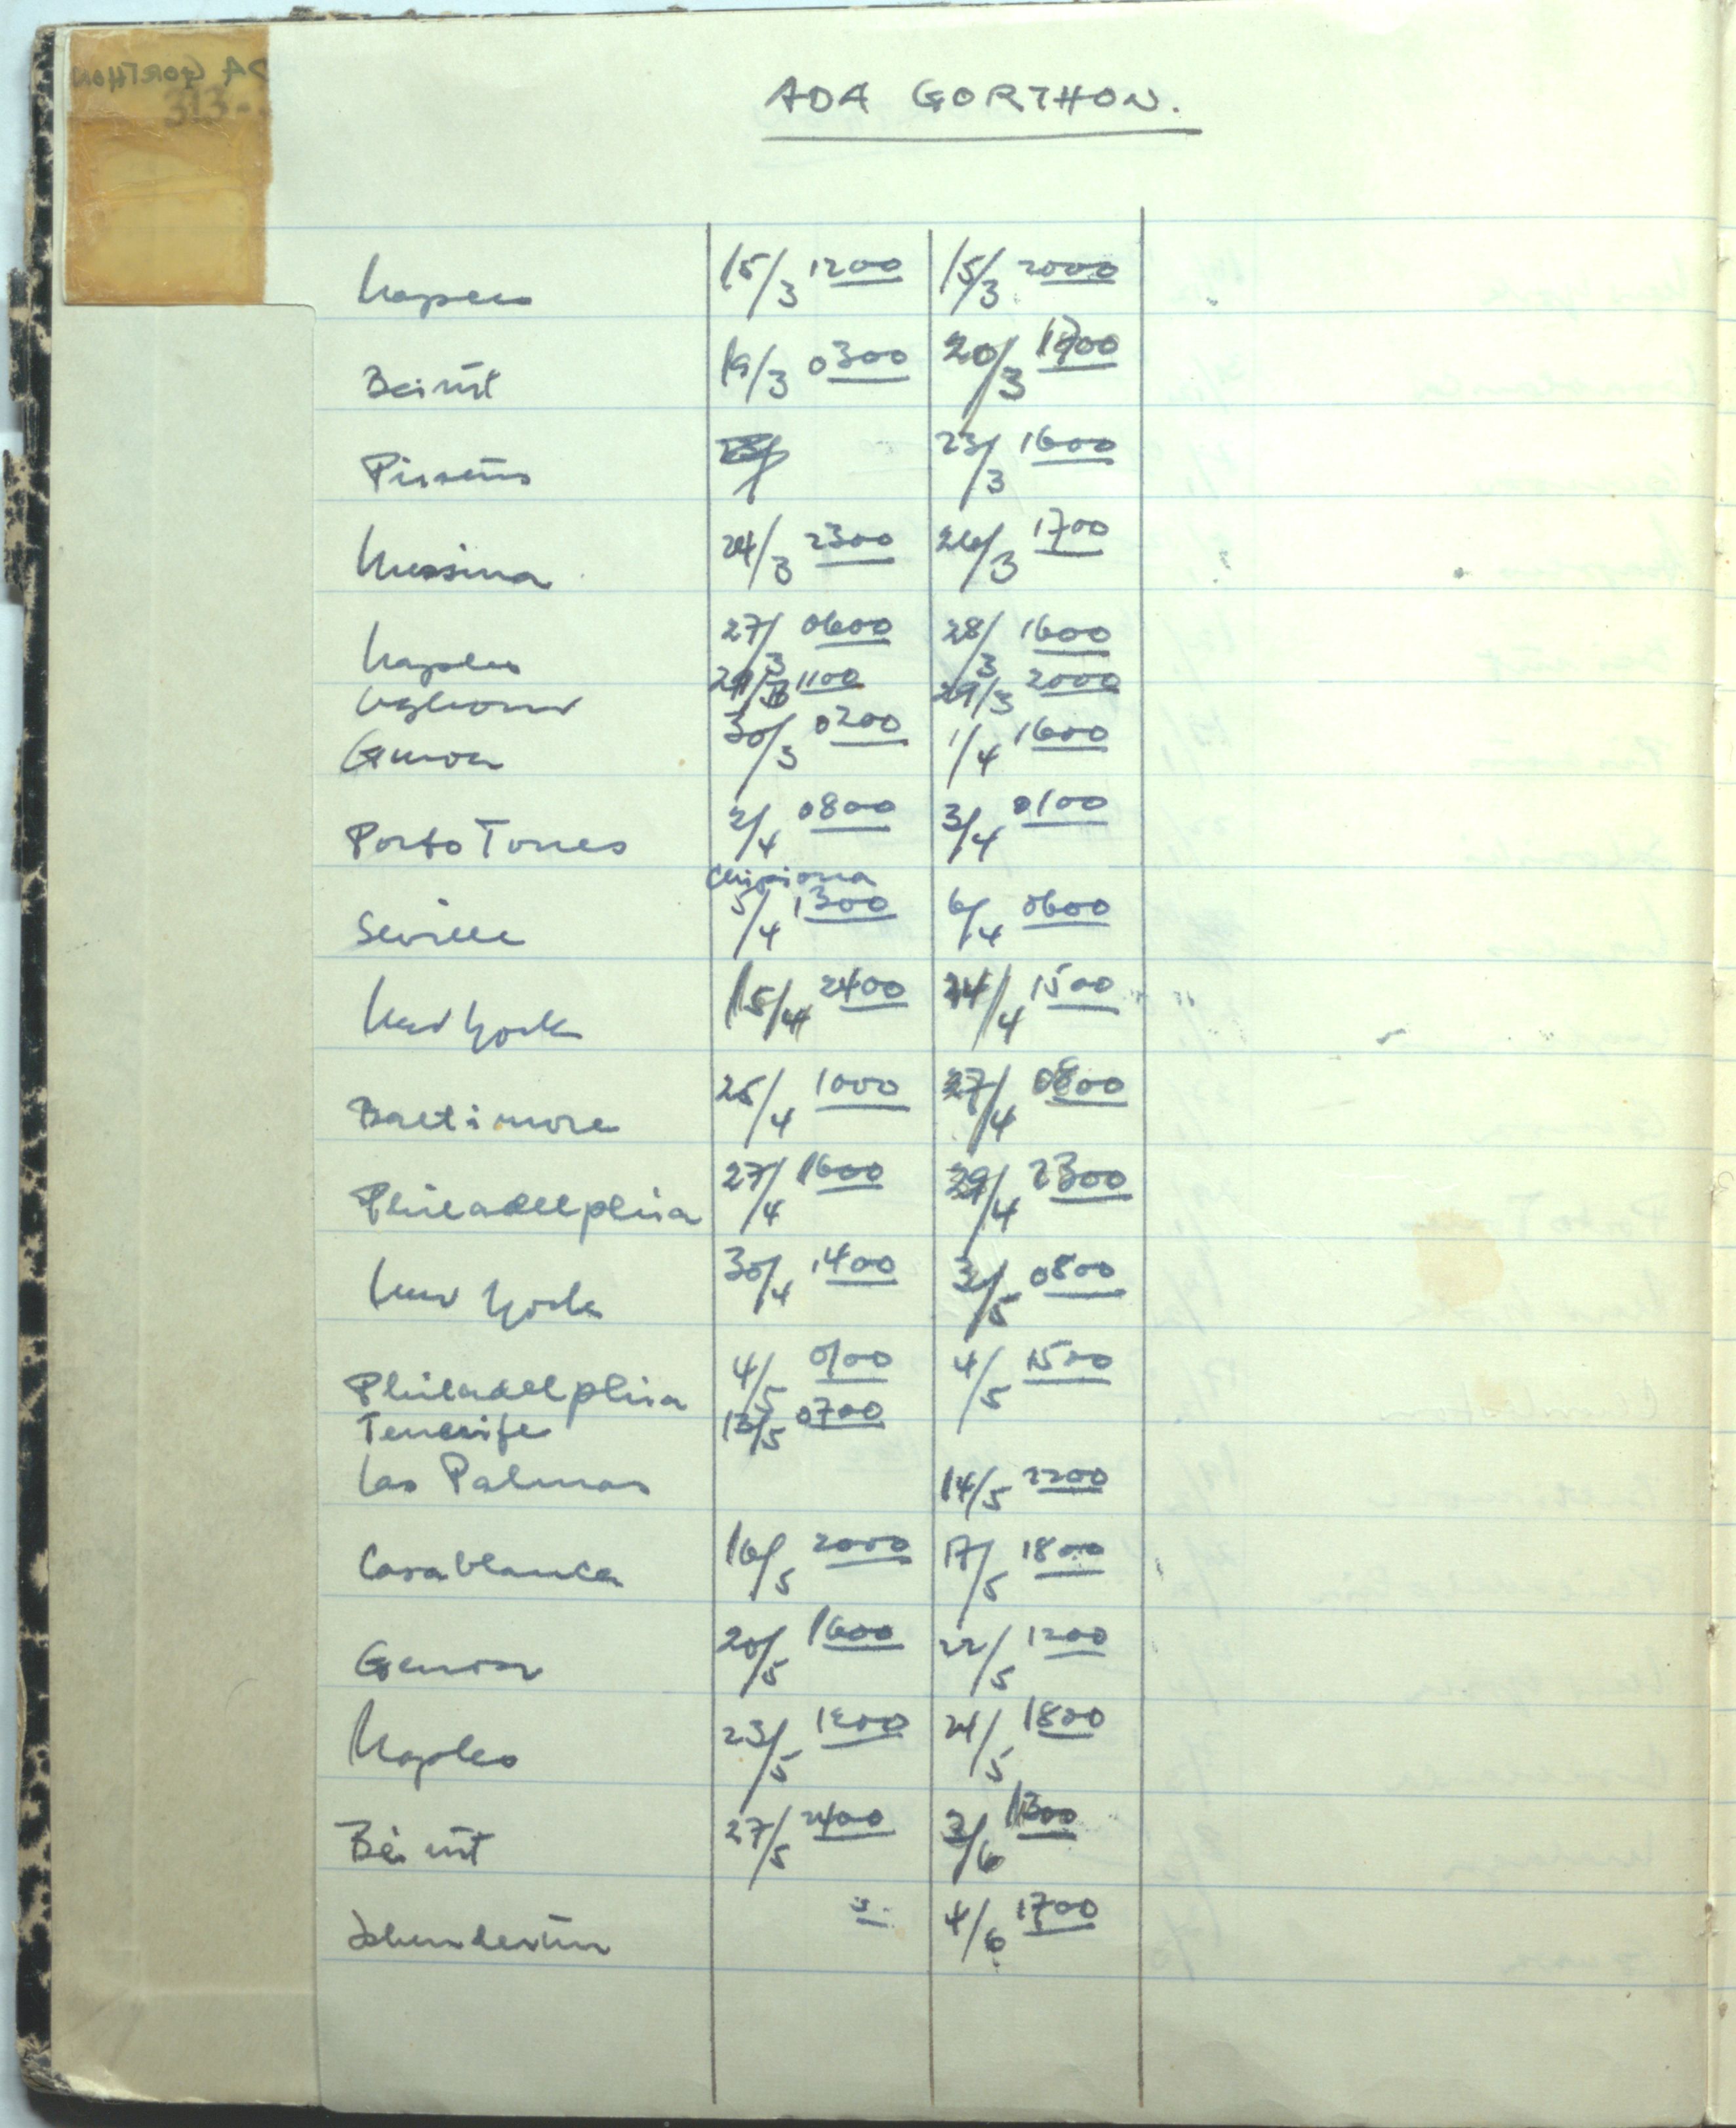 ADA GORTHON.
Naples 15/3 1200 15/3 2000
Beirut 19/3 0300 20/3
Piraeus 23/3 1600
Messina 24/3 2300 26/3 1700
Naples 27/3 0600 28/3 1600
Leghorn 29/3 1100 29/3 2000
Genoa 30/3 0200 1/4 1600
Porto Torres 2/4 0800 3/4 0100
Chipiona
Seville 5/4 1300 6/4 0600
New York 15/4 2400 24/4 1500
Baltimore 25/4 1000 27/4 0800
Philadelphia 27/4 1600 29/4 2300
New York 30/4 1400 0800
Philadelphia 4/5 0100 4/5 1500
Tenerife 13/5 0700
Las Palmas 14/5 2200
Casablanca 16/5 2000 17/5 1800
Genoa 20/5 1600 22/5 1200
Naples 23/5 24/5 1800
Beirut 27/5 2400 3/6
Iskenderun 4/6 1700